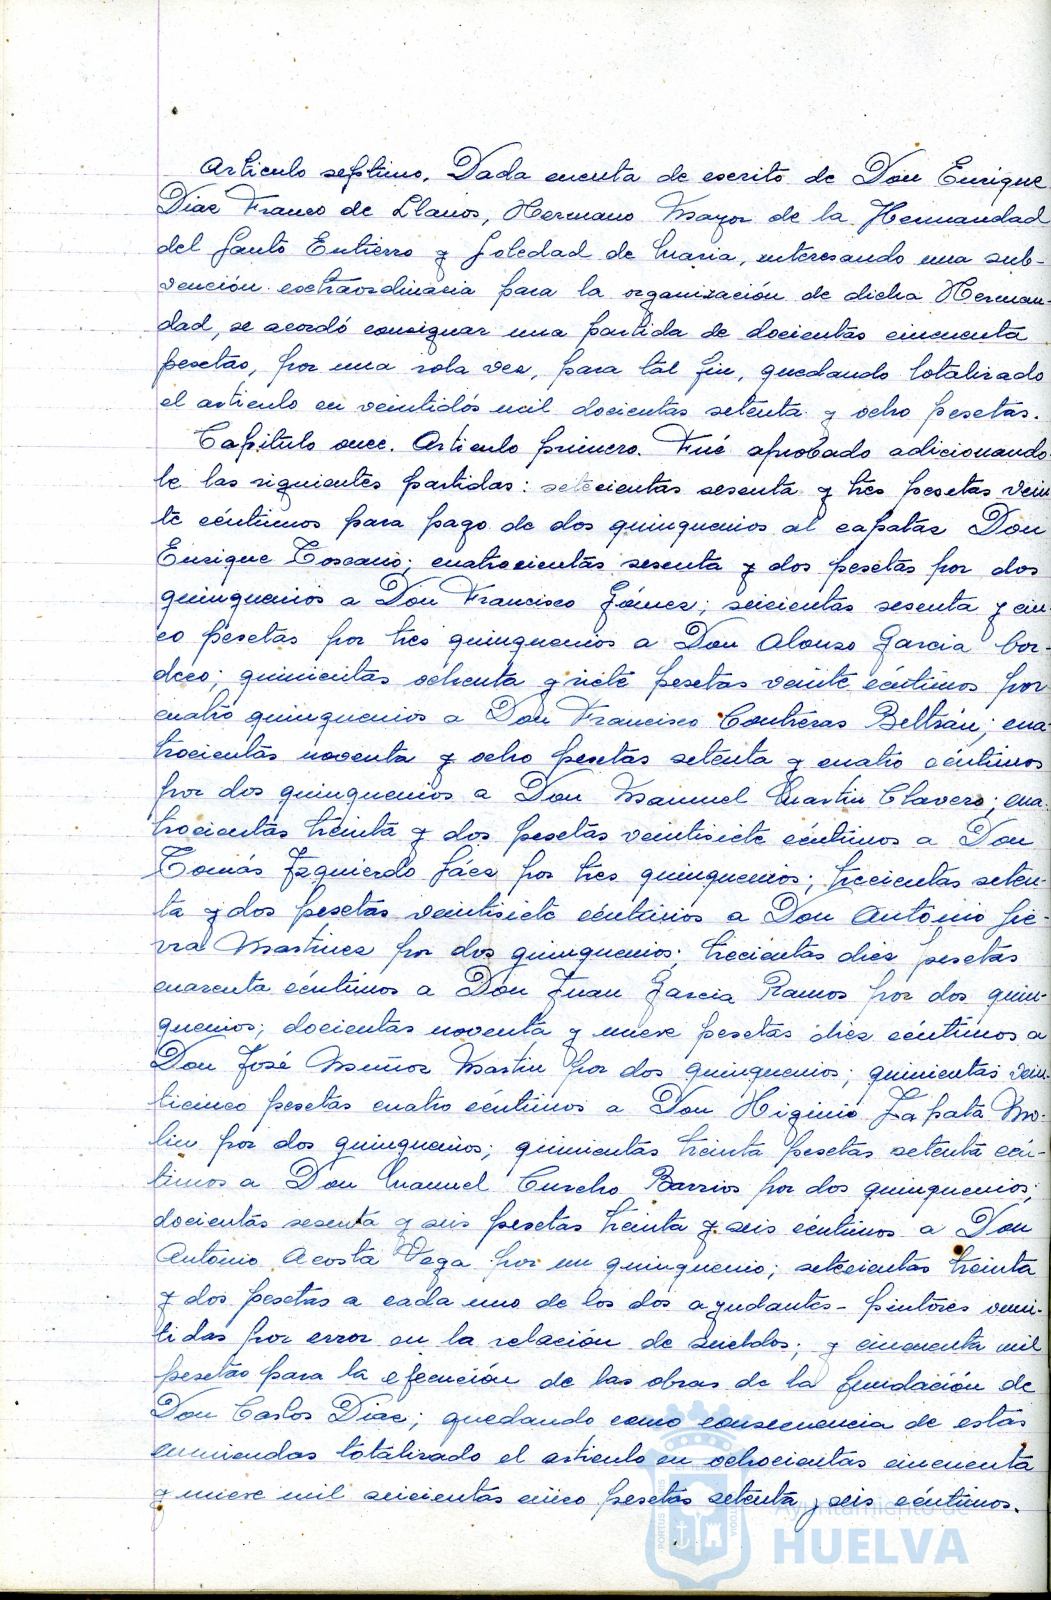 Articulo septimo. Dada cuenta de escrito de Don Enrique
Diaz Franco de Llanos, Hermano Mayor de la Hermandad
del Santo Entierro y Soledad de Maria, interesando una sub-
vención extraordinaria para la organización de dicha Herman-
dad, se acordó consignar una partida de docientas cincuenta
pesetas, por una sola vez, para tal fin, quedando totalizado
el articulo en veintidós mil docientas setenta y ocho pesetas.
Capitulo once. Articulo primero. Fué aprobado adicionando-
le las siguientes partidas: setecientas sesenta y tres pesetas vein
te céntimos para pago de dos quinquenios al capataz Don
Enrique Toscano; cuatrocientas sesenta y dos pesetas por dos
quinquenios a Don Francisco Gómez; seicientas sesenta y cin-
co pesetas por tres quinquenios a Don Alonso Garcia Cor-
dero; quinientas ochenta y siete pesetas veinte céntimos por
cuatro quinquenios a Don Francisco Contreras Beltrán; cua-
trocientas noventa y ocho pesetas setenta y cuatro céntimos
por dos quinquenios a Don Manuel Martin Clavero; cua-
trocientas treinta y dos pesetas veintisiete céntimos a Don
Tomás Izquierdo Sáez por tres quinquenios; trecientas seten-
ta y dos pesetas veintisiete céntimos a Don Antonio
Martinez por dos quinquenios; trecientas diez pesetas
cuarenta céntimos a Don Juan Garcia Ramos por dos quin-
quenios; docientas noventa y nueve pesetas diez céntimos a
Don José Muñoz Martin por dos quinquenios; quinientas vein-
ticinco pesetas cuatro céntimos a Don Higinio Zapata Mo-
lin por dos quinquenios; quinientas treinta pesetas setenta cén-
timos a Don Manuel Curcho Barrios por dos quinquenios;
docientas sesenta y seis pesetas treinta y seis céntimos a Don
Antonio Acosta Vega por un quinquenio; setecientas treinta
y dos pesetas a cada uno de los dos ayudantes-pintores omi-
tidas por error en la relación de sueldos; y cincuenta mil
pesetas para la ejecución de las obras de la fundación de
Don Carlos Diaz; quedando como consecuencia de estas
enmiendas totalizado el articulo en ochocientas cincuenta
y nueve mil seicientas cinco pesetas setenta y seis céntimos.
Ayuntamiento de
HUELVA